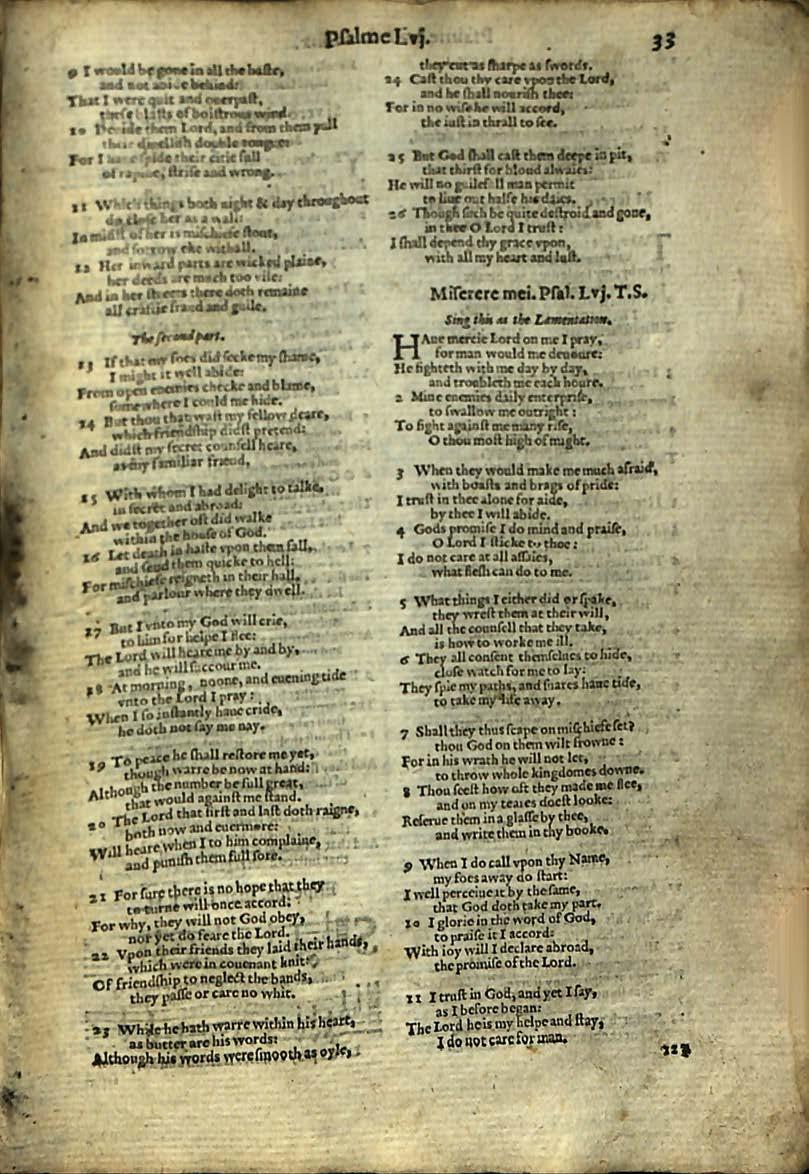 Psalme Lvj.
33
9 I would be gone in all the haste,
and not abide behind:
That I were quit and ouerpast,
these blasts of boistrous wind.
10 Deuide them Lord, and from them pull
their diuellish double tongue:
For I haue spide their citie full
of rapine, strife and wrong.
11 Which things both night & day throughout
do close her as a wall:
In midst of her is mischiefe stout,
and sorrow eke withall.
12 Her inward parts are wicked plaine,
her deeds are much too vile:
And in her streets there doth remaine
all craftie fraud and guile.
The second part.
13 If that my foes did seeke my shame,
I might it well abide:
From open enemies checke and blame,
somewhere I could me hide.
14 But thou that wast my fellow deare,
which friendship didst pretend:
And didst my secret counsell heare,
as my familiar friend,
15 With whom I had delight to talke,
in secret and abroad:
And we together oft did walke
within the house of God.
16 Let death in haste vpon them fall,
and send them quicke to hell:
For mischiefe reigneth in their hall,
and parlour where they dwell.
17 But I vnto my God will crie,
to him for helpe I flee:
The Lord will heare me by and by,
and he will succour me.
18 At morning, noone, and euening tide
vnto the Lord I pray:
When I so instantly haue cride,
he doth not say me nay.
19 To peace he shall restore me yet,
though warre be now at hand:
Although the number be full great,
that would against me stand.
20 The Lord that first and last doth raigne,
both now and euermore:
Will heare when I to him complaine,
and punish them full sore.
21 For sure there is no hope that they
to turne will once accord:
For why, they will not God obey,
nor yet do feare the Lord.
22 Vpon their friends they laid their hands,
which were in couenant knit:
Of friendship to neglect the bands,
they passe or care no whit.
23 While he hath warre within his heart,
as butter are his words:
Although his words were smooth as oyle,
they cut as sharpe as swords.
24 Cast thou thy care vpon the Lord,
and he shall nourish thee:
For in no wise he will accord,
the iust in thrall to see.
25 But God shall cast them deepe in pit,
that thirst for bloud alwaies:
He will no guilefull man permit
to liue out halfe his daies.
26 Though such be quite destroid and gone,
in thee O Lord I trust:
I shall depend thy grace vpon,
with all my heart and lust.
Miserere mei. Psal. Lvj. T.S.
Sing this as the Lamentation.
HAue mercie Lord on me I pray,
for man would me deuoure:
He fighteth with me day by day,
and troubleth me each houre.
2 Mine enemies daily enterprise,
to swallow me outright:
To fight against me many rise,
O thou most high of might.
3 When they would make me much afraid,
with boasts and brags of pride:
I trust in thee alone for aide,
by thee I will abide.
4 Gods promise I do mind and praise,
O Lord I sticke to thee:
I do not care at all assaies,
what flesh can do to me.
5 What things I either did or spake,
they wrest them at their will,
And all the counsell that they take,
is how to worke me ill.
6 They all consent themselues to hide,
close watch for me to lay:
They spie my paths, and snares haue tide,
to take my life away.
7 Shall they thus scape on mischiefe set?
thou God on them wilt frowne:
For in his wrath he will not let,
to throw whole kingdomes downe.
8 Thou seest how oft they made me flee,
and on my teares doest looke:
Reserue them in a glasse by thee,
and write them in thy booke.
9 When I do call vpon thy Name,
my foes away do start:
I well perceiue it by the same,
that God doth take my part.
10 I glorie in the word of God,
to praise it I accord:
With ioy will I declare abroad,
the promise of the Lord.
11 I trust in God, and yet I say,
as I before began:
The Lord he is my helpe and stay,
I do not care for man.